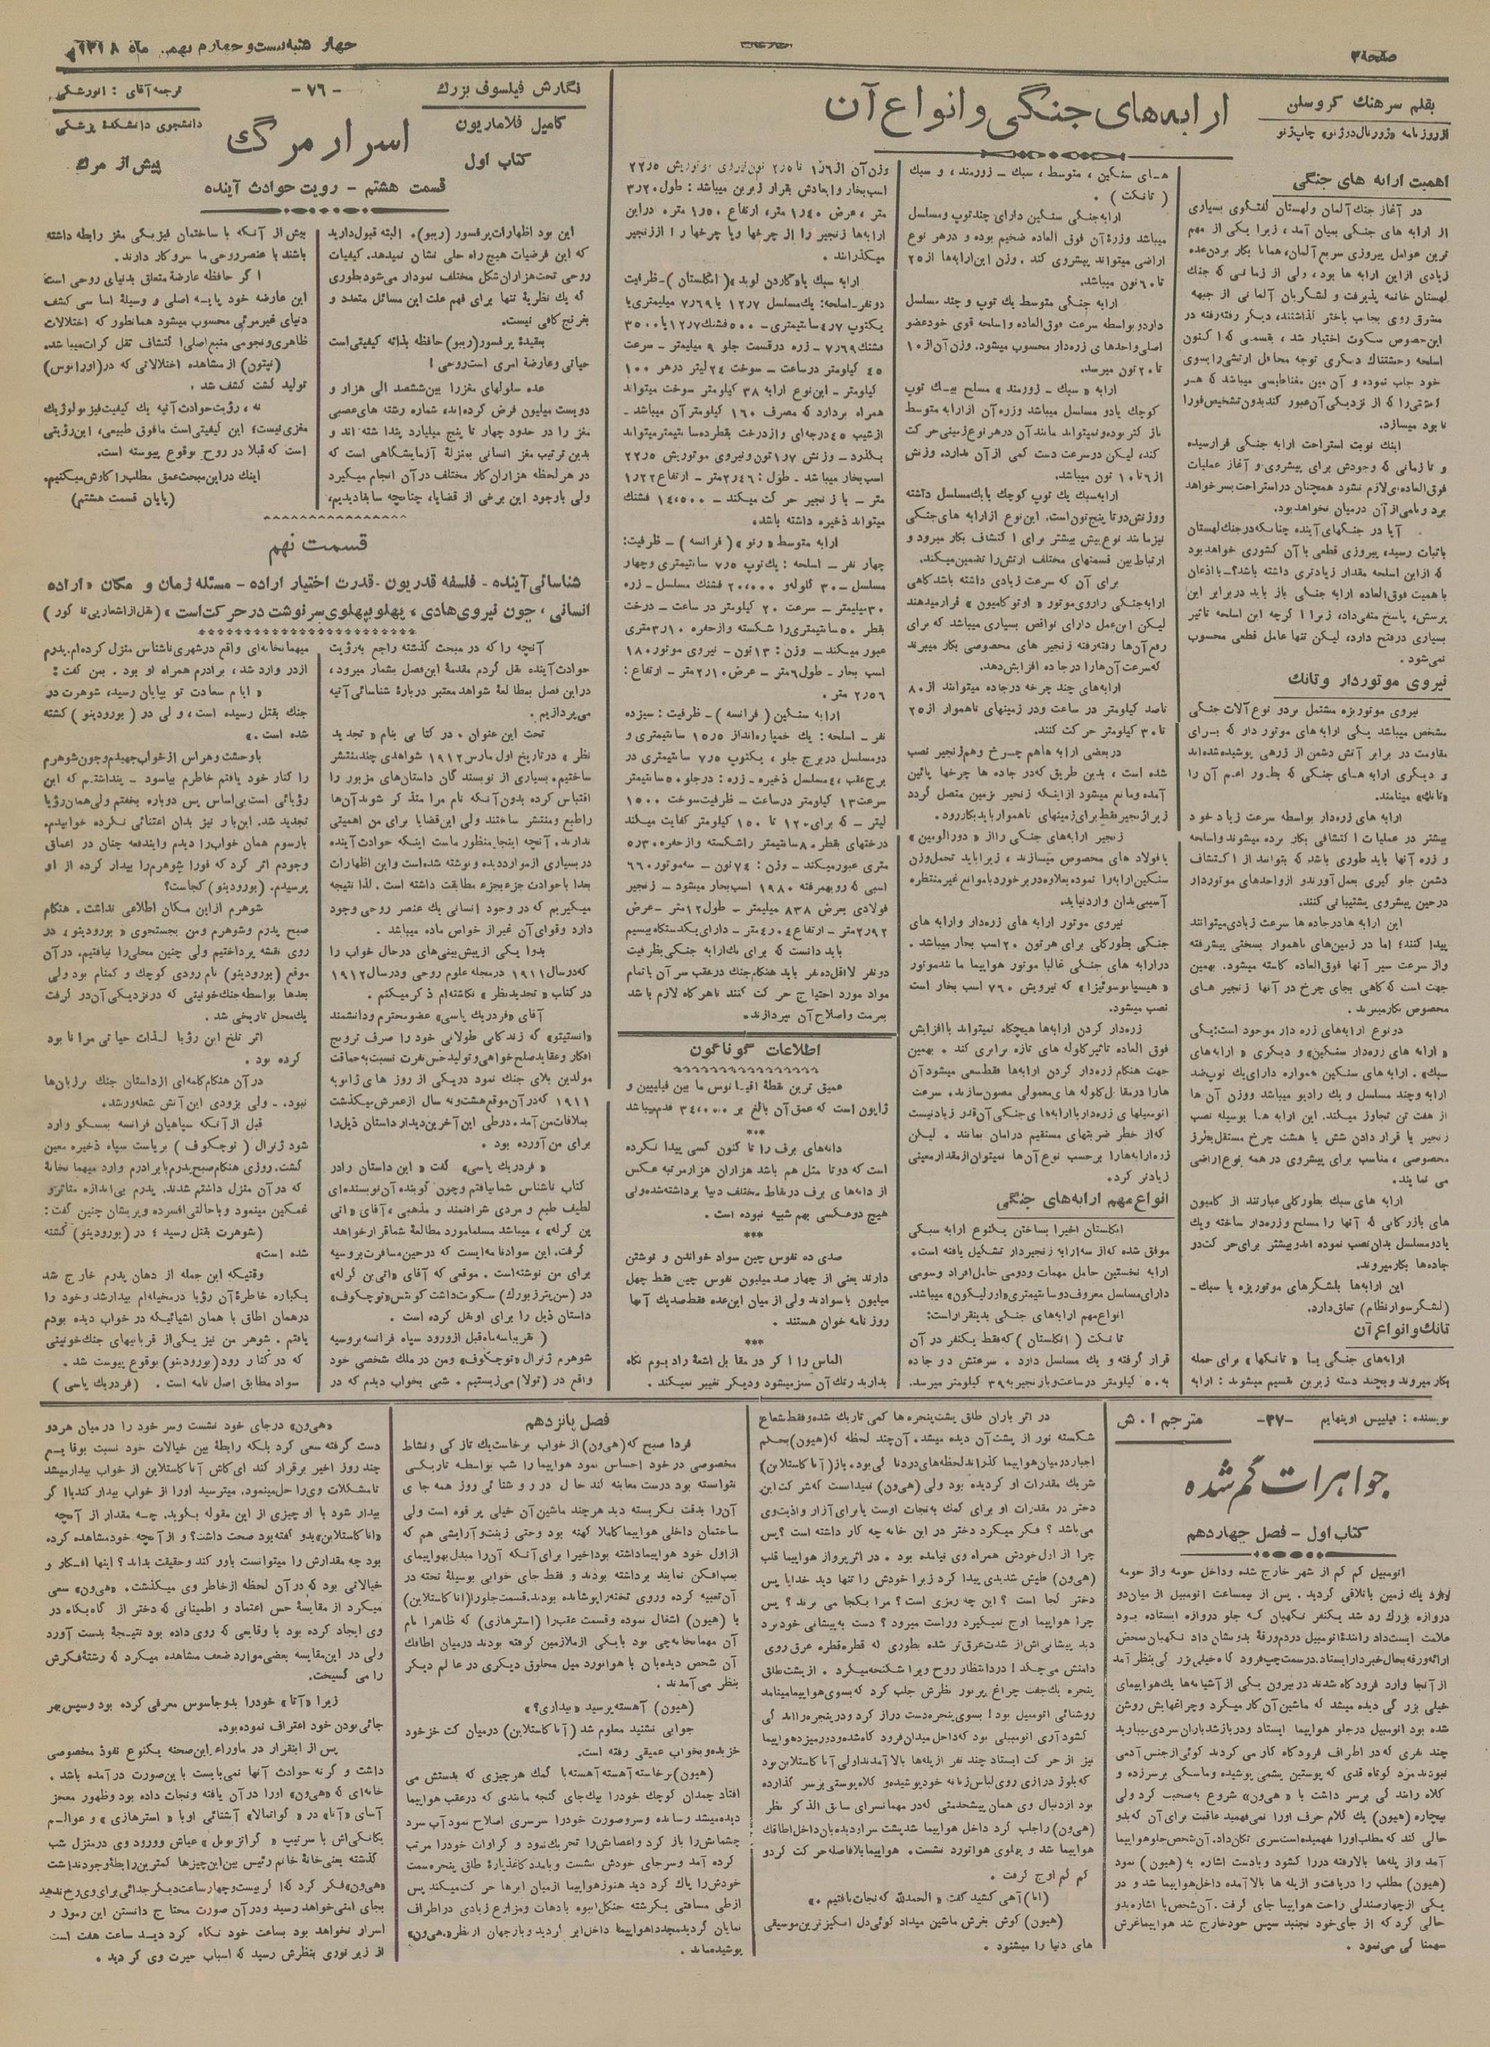 صفحه ۳
چهار شنبه بیست و چهارم بهمن ماه ۱۳۱۸
بقلم سرهنك كروسلن
از روزنامه «ژورنال دو ژنو» چاپ ژنو
ارابه‌های جنگی و انواع آن
اهمیت ارابه های جنگی
در آغاز جنك آلمان و لهستان گفتگوی بسیاری
از ارابه های جنگی بمیان آمد، زیرا یکی از مهم
ترین عوامل پیروزی سریع آلمان، همانا بکار بردن عده
زیادی از این ارابه ها بود، ولی از زمانی که جنك
لهستان خاتمه پذیرفت و لشگریان آلمانی از جبهه
مشرق روی بجانب باختر گذاشتند، دیگر رفته رفته در
این خصوص سکوت اختیار شد، بقسمی که اکنون
اسلحه وحشتناك دیگری توجه محافل ارتشی را بسوی
خود جلب نموده و آن مین مغناطیسی میباشد که هر
کشتی را که از نزدیکی آن عبور کند بدون تشخیص فورا
نابود میسازد.
اینك نوبت استراحت ارابه جنگی فرا رسیده
و تا زمانی که وجودش برای پیشروی و آغاز عملیات
فوق العاده‌ای لازم نشود همچنان در استراحت بسر خواهد
برد و نامی از آن درمیان نخواهد بود.
آیا در جنگهای آینده چنانکه در جنك لهستان
باثبات رسید، پیروزی قطعی با آن کشوری خواهد بود
که از این اسلحه مقدار زیادتری داشته باشد؟ـ با اذعان
با همیت فوق العاده ارابه جنگی باز باید در برابر این
پرسش، پاسخ منفی داد، زیرا اگرچه این اسلحه تاثیر
بسیاری در فتح دارد، لیکن تنها عامل قطعی محسوب
نمی‌شود.
نیروی موتوردار و تانك
نیروی موتوریزه مشتمل بردو نوع آلات جنگی
مشخص میباشد یکی ارابه های موتور دار که برای
مقاومت در برابر آتش دشمن از زرهی پوشیده شده‌اند
و دیگری ارابه های جنگی که بطور اعم آن را
«تانك» مینامند.
ارابه های زره‌دار بواسطه سرعت زیاد خود
بیشتر در عملیات اکتشافی بکار برده میشوند و اسلحه
و زره آنها باید طوری باشد که بتوانند از اکتشاف
دشمن جلو گیری بعمل آورند و از واحدهای موتوردار
در حین پیشروی پشتیبانی کنند.
این ارابه ها در جاده ها سرعت زیادی میتوانند
پیدا کنند؛ اما در زمین‌های ناهموار بسختی پیشرفته
و از سرعت سیر آنها فوق العاده کاسته میشود. بهمین
جهت است که گاهی بجای چرخ در آنها زنجیر های
مخصوص بکار میبرند.
دو نوع ارابه های زره دار موجود است: یکی
« ارابه های زره دار سنگین» و دیگری « ارابه های
سبك» . ارابه های سنگین همواره دارای يك توپ ضد
ارابه و چند مسلسل و يك رادیو میباشد و وزن آن ها
از هفت تن تجاوز میکند. این ارابه ها بوسیله نصب
زنجیر یا قرار دادن شش یا هشت چرخ مستقل بطرز
مخصوصی ، مناسب برای پیشروی در همه نوع اراضی
می نمایند.
ارابه های سبك بطور کلی عبارتند از کامیون
های بازرگانی که آنها را مسلح و زره‌دار ساخته و يك
یا دو مسلسل بدان نصب نموده اند و بیشتر برای حرکت در
جاده ها بکار میروند.
این ارابه‌ها بلشگرهای موتوریزه یا سبك ـ
(لشگر سوار نظام) تعلق دارد.
تانك و انواع آن
ارابه های جنگی یا « تانکها» برای حمله
بکار میروند و بچند دسته زیرین تقسیم میشوند : ارابه
های سنگین ، متوسط ، سبك ـ زورمند ، و سبك
( تانکت ) .
ارابه جنگی سنگین دارای چند توپ و مسلسل
میباشد و زره آن فوق العاده ضخیم بوده و در هر نوع
اراضی میتواند پیشروی کند . وزن این ارابه‌ها از ۲۵
تا ۶۰ تون میباشد.
ارابه جنگی متوسط يك توپ و چند مسلسل
دارد و بواسطه سرعت فوق العاده و اسلحه قوی خود عضو
اصلی واحدهای زره‌دار محسوب میشود. وزن آن از ۱۰
تا ۲۰ تون میرسد.
ارابه « سبك ـ زورمند » مسلح بيك توپ
کوچك یا دو مسلسل میباشد و زره آن از ارابه متوسط
نازکتر بوده و نمیتواند مانند آن در هر نوع زمینی حرکت
کند، لیکن در سرعت دست کمی از آن ندارد. وزنش
از ۶ تا ۱۰ تون میباشد.
ارابه سبك يك توپ كوچك یا يك مسلسل داشته
و وزنش دو تا پنج تون است. این نوع از ارابه های جنگی
نیز مانند نوع پیش بیشتر برای اکتشاف بکار میرود و
ارتباط بین قسمتهای مختلف ارتش را تضمین میکند.
برای آن که سرعت زیادی داشته باشد گاهی
ارابه جنگی را روی موتور « اوتو کامیون » قرار میدهند
لیکن این عمل دارای نواقص بسیاری میباشد که برای
رفع آن‌ها رفته رفته زنجیر های مخصوصی بکار میبرند
که سرعت آن‌ها را در جاده افزایش دهد.
ارابه‌های چند چرخه در جاده میتوانند از ۸۰
تا صد کیلومتر در ساعت و در زمینهای ناهموار از ۲۵
تا ۳۰ کیلومتر حرکت کنند.
در بعضی ارابه ها هم چرخ و هم زنجیر نصب
شده است ، بدین طریق که در جاده ها چرخها پائین
آمده و مانع میشود از اینکه زنجیر بزمین متصل گردد
زیرا زنجیر فقط برای زمینهای ناهموار باید بکار رود.
زنجیر ارابه های جنگی را از « دورالومین »
یا فولاد های مخصوص میسازند ، زیرا باید تحمل وزن
سنگین ارابه را نموده بعلاوه در برخورد با موانع غیر منتظره
آسیبی بدان وارد نیاید.
نیروی موتور ارابه های زره‌دار و ارابه های
جنگی بطور کلی برای هر تون ۲۰ اسب بخار میباشد .
در ارابه های جنگی غالبا موتور هواپیما مانند موتور
« هیسپانو سوئیزا» که نیرویش ۷۶۰ اسب بخار است
نصب میشود.
زره‌دار کردن ارابه‌ها هیچگاه نمیتواند با افزایش
فوق العاده تاثیر گلوله های تازه برابری کند . بهمین
جهت هنگام زره‌دار کردن ارابه‌ها فقط سعی میشود آن
ها را در مقابل گلوله های معمولی مصون سازند. سرعت
اتومبیلهای زره‌دار یا ارابه های جنگی آن قدر زیاد نیست
که از خطر ضربتهای مستقیم در امان بمانند . لیکن
زره ارابه‌ها را برحسب نوع آن‌ها نمیتوان از مقدار معینی
زیادتر کرد.
انواع مهم ارابه‌های جنگی
انگلستان اخیرا بساختن یکنوع ارابه سبکی
موفق شده که از سه ارابه زنجیردار تشکیل یافته است.
ارابه نخستین حامل مهمات و دومی حامل افراد و سومی
دارای مسلسل معروف دو سانتیمتری «اورلیکون» میباشد.
انواع مهم ارابه‌های جنگی بدینقرار است:
تانکت ( انگلستان ) که فقط یکنفر در آن
قرار گرفته و يك مسلسل دارد . سرعتش در جاده
به ۵۰ کیلومتر در ساعت و با زنجیر به ۳۹ کیلومتر میرسد.
وزن آن از ۱٫۶ تا ۲٫۵ تون نیروی موتوریش ۲۲٫۵
اسب بخار و ابعادش بقرار زیرین میباشد : طول ۳٫۲۰
متر ، عرض ۱٫۴۰ متر، ارتفاع ۱٫۵۰ متر . در این
ارابه‌ها زنجیر را از چرخها و یا چرخها را از زنجیر
میگذرانند .
ارابه سبك یا « گاردن لوید »( انگلستان )ـ ظرفیت
دو نفرـ اسلحه: يك مسلسل ۱۲٫۷ یا ۷٫۶۹ میلیمتری یا
یکتوپ ۴٫۷ سانتیمتری ـ ۵۰۰ فشنك ۱۲٫۷ یا ۳۵۰۰
فشنك ۷٫۶۹ ـ زره در قسمت جلو ۹ میلیمتر ـ سرعت
۴۵ کیلومتر در ساعت ـ سوخت ۲۴ لیتر در هر ۱۰۰
کیلومتر ـ این نوع ارابه ۳۸ کیلومتر سوخت میتواند
همراه بردارد که مصرف ۱۶۰ کیلومتر آن میباشد ـ
از شیب ۴۵ درجه‌ای و از درخت بقطر ده سانتیمتر میتواند
بگذرد ـ وزنش ۱٫۷ تون و نیروی موتوریش ۲۲٫۵
اسب بخار میباشد . طول : ۲٫۴۶ متر ـ ارتفاع ۱٫۲۲
متر ـ با زنجیر حرکت میکند ـ ۱۴٫۰۰۰ فشنك
میتواند ذخیره داشته باشد.
ارابه متوسط « رنو » ( فرانسه ) ـ ظرفیت:
چهار نفر ـ اسلحه : یکتوپ ۷٫۵ سانتیمتری و چهار
مسلسل ـ ۳۰ گلوله و ۲۰٫۰۰۰ فشنك مسلسل ـ زره
۳۰ میلیمتر ـ سرعت ۲۰ کیلومتر در ساعت ـ درخت
بقطر ۵۰ سانتیمتری را شکسته و از حفره ۳٫۱۰ متری
عبور میکند ـ وزن : ۱۳ تون ـ نیروی موتور ۱۸۰
اسب بخار ـ طول ۶ متر ـ عرض ۲٫۱۰ متر ـ ارتفاع :
۲٫۵۶ متر .
ارابه سنگین ( فرانسه ) ـ ظرفیت : سیزده
نفر ـ اسلحه: يك خمپاره‌انداز ۱۵٫۵ سانتیمتری و
دو مسلسل در برج جلو ، یکتوپ ۷٫۵ سانتیمتری در
برج عقب ، ۴ مسلسل ذخیره ـ زره : در جلو ۵۰ سانتیمتر
سرعت ۱۳ کیلومتر در ساعت ـ ظرفیت سوخت ۱۵۰۰
لیتر ـ که برای ۱۲۰ تا ۱۵۰ کیلومتر کفایت میکند
درختهای بقطر ۸۰ سانتیمتر را شکسته و از حفره ۵٫۳۰
متری عبور میکند ـ وزن : ۷۴ تون ـ سه موتور ۶۶۰
اسبی که رویهمرفته ۱۹۸۰ اسب بخار میشود ـ زنجیر
فولادی بعرض ۸۳۸ میلیمتر ـ طول ۱۲ متر ـ عرض
۲٫۹۲ متر ـ ارتفاع ۴٫۰۴ متر ـ دارای یکدستگاه بیسیم
باید دانست که برای يك ارابه جنگی بظرفیت
دو نفر لااقل ده نفر باید هنگام جنك در عقب سر آن با تمام
مواد مورد احتیاج حرکت کنند تا هر گاه لازم باشد
بمرمت و اصلاح آن بپردازند.
اطلاعات گوناگون
عمیق ترین نقطهٔ اقیانوس ما بین فیلیپین و
ژاپون است که عمق آن بالغ بر ۳۴٫۰۰۰ قدم میباشد
***
دانه‌های برف را تا کنون کسی پیدا نکرده
است که دو تا مثل هم باشد هزاران هزار مرتبه عکس
از دانه‌های برف در نقاط مختلف دنیا برداشته شده ولی
هیچ دو عکسی بهم شبیه نبوده است .
***
صدی ده نفوس چین سواد خواندن و نوشتن
دارند یعنی از چهار صد میلیون نفوس چین فقط چهل
میلیون با سوادند ولی از میان این عده فقط صد یك آنها
روزنامه خوان هستند .
***
الماس را اگر در مقابل اشعهٔ رادیوم نگاه
بدارند رنگ آن سبز میشود و دیگر تغییر نمیکند .
نگارش فیلسوف بزرك
كامیل فلاماریون
کتاب اول
- ۷۶ -
اسرار مرگ
ترجمه آقای : انورشکی
دانشجوی دانشکدهٔ پزشکی
پیش از مرك
قسمت هشتم - رویت حوادث آینده
این بود اظهارات پرفسور (ریبو). البته قبول دارید
که این فرضیات هیچ راه حلی نشان نمیدهد. کیفیات
روحی تحت هزاران شکل مختلف نمودار می‌شود بطوری
که يك نظریهٔ تنها برای فهم علت این مسائل متعدد و
بغرنج کافی نیست.
بعقیدهٔ پرفسور (ریبو) حافظه بذاته کیفیتی است
حیاتی و عارضهٔ امری است روحی !
عده سلولهای مغز را بین ششصد الی هزار و
دویست میلیون فرض کرده‌اند، شماره رشته های عصبی
مغز را در حدود چهار تا پنج میلیارد پنداشته اند و
بدین ترتیب مغز انسانی بمنزلهٔ آزمایشگاهی است که
در هر لحظه هزاران کار مختلف در آن انجام میگیرد
ولی با وجود این برخی از قضایا، چنانچه سابقا دیدیم،
بیش از آنکه با ساختمان فیزیکی مغز رابطه داشته
باشند با عنصر روحی ما سر و کار دارند.
اگر حافظه عارضهٔ متعلق بدنیای روحی است
این عارضه خود پایه اصلی و وسیلهٔ اساسی کشف
دنیای غیر مرئی محسوب میشود همانطور که اختلالات
ظاهری و نجومی منبع اصلی اکتشاف ثقل کرات میباشد.
(نپتون) از مشاهده اختلالاتی که در (اورانوس)
تولید گشت کشف شد .
نه ، رؤیت حوادث آتیه يك کیفیت فیزیولوژیك
مغزی نیست؛ این کیفیتی است مافوق طبیعی، این رؤیتی
است که قبلا در روح بوقوع پیوسته است.
اینك در این مبحث عمق مطلب را کاوش میکنیم.
(پایان قسمت هشتم)
قسمت نهم
شناسائی آینده - فلسفه قدریون - قدرت اختیار اراده - مسئله زمان و مکان «اراده
انسانی ، چون نیروی هادی، پهلو بپهلوی سرنوشت در حرکت است» ( نقل از اشعار پی تا گور )
آنچه را که در مبحث گذشته راجع به رؤیت
حوادث آینده نقل کردم مقدمهٔ این فصل بشمار میرود،
در این فصل بمطالعهٔ شواهد معتبر دربارهٔ شناسائی آتیه
می‌پردازیم .
تحت این عنوان ، در کتابی بنام « تجدید
نظر » در تاریخ اول مارس ۱۹۱۲ شواهدی چند منتشر
ساختیم. بسیاری از نویسندگان داستان‌های مزبور را
اقتباس کرده بدون آنکه نام مرا متذکر شوند آن‌ها
را طبع و منتشر ساختند ولی این قضایا برای من اهمیتی
ندارند. آنچه اینجا منظور ماست اینکه حوادث آینده
در بسیاری از موارد دیده و نوشته شده است و این اظهارات
بعدا با حوادث جزء بجزء مطابقت داشته است . لذا نتیجه
میگیریم که در وجود انسانی يك عنصر روحی وجود
دارد و قوای آن غیر از خواص ماده میباشد .
بدوا یکی از پیش بینی های در حال خواب را
که در سال ۱۹۱۱ در مجله علوم روحی و در سال ۱۹۱۲
در کتاب « تجدید نظر » نگاشته‌ام ذکر میکنم .
آقای «فردريك پاسی» عضو محترم و دانشمند
«انستیتو» که زندگانی طولانی خود را صرف ترویج
افکار و عقاید صلح خواهی و تولید حس نفرت نسبت به حماقت
مولدین بلای جنك نمود در یکی از روز های ژانویه
۱۹۱۱ که در آن موقع هشت و نه سال از عمرش میگذشت
بملاقات من آمد. در طی این آخرین دیدار داستان ذیل را
برای من آورده بود .
« فردريك پاسی» گفت « این داستان را در
کتاب ناشناس شما نیافتم و چون گوینده آن نویسنده‌ای
لطیف طبع و مردی شرافتمند و مذهبی ، آقای « اتی
ین گرله» ، میباشد مسلما مورد مطالعهٔ شما قرار خواهد
گرفت. این سواد نامه ایست که در حین مسافرت بروسیه
برای من نوشته است. موقعی که آقای «اتی ین گرله»
در (سن پترزبورك) سکونت داشت کونتس «توچکوف»
داستان ذیل را برای او نقل کرده است .
( تقریبا سه ماه قبل از ورود سپاه فرانسه بروسیه
شوهرم ژنرال «توچکوف» و من در ملك شخصی خود
واقع در (تولا) می‌زیستیم . شبی بخواب دیدم که در
میهمانخانه‌ای واقع در شهری ناشناس منزل کرده‌ام. پدرم
از در وارد شد ، برادرم همراه او بود . بمن گفت :
« ایام سعادت تو بپایان رسید، شوهرت در
جنك بقتل رسیده است ، ولی در ( بورودینو ) کشته
شده است . »
با وحشت و هراس از خواب جهیدم و چون شوهرم
را کنار خود یافتم خاطرم بیاسود - پنداشتم که این
رؤیائی است بی‌اساس پس دوباره بخفتم ولی همان رؤیا
تجدید شد. این بار نیز بدان اعتنائی نکرده خوابیدم.
بار سوم همان خواب را دیدم و ایندفعه چنان در اعماق
وجودم اثر کرد که فورا شوهرم را بیدار کرده از او
پرسیدم. (بورودینو) کجاست؟
شوهرم از این مکان اطلاعی نداشت . هنگام
صبح پدرم و شوهرم و من بجستجوی « بورودینو» در
روی نقشه پرداختیم ولی چنین محلی را نیافتیم. در آن
موقع (بورودینو) نام رودی کوچك و گمنام بود ولی
بعدها بواسطه جنك خونینی که در نزدیکی آن در گرفت
يك محل تاریخی شد .
اثر تلخ این رؤیا لذات حیاتی مرا نابود
کرده بود .
در آن هنگام کلمه‌ای از داستان جنك بر زبان‌ها
نبود. ـ ولی بزودی این آتش شعله‌ور شد.
قبل از آنکه سپاهیان فرانسه بمسکو وارد
شود ژنرال ( توچکوف ) بریاست سپاه ذخیره معین
گشت. روزی هنگام صبح پدرم با برادرم وارد میهمانخانهٔ
که در آن منزل داشتم شدند. پدرم بی اندازه متاثر و
غمگین مینمود و با حالتی افسرده و پریشان چنین گفت :
(شوهرت بقتل رسید ؛ در (بورودینو) کشته
شده است»
وقتیکه این جمله از دهان پدرم خارج شد
یکباره خاطرهٔ آن رؤیا در مخیله‌ام بیدار شد و خود را
در همان اطاق با همان اشیائیکه در خواب دیده بودم
یافتم . شوهر من نیز یکی از قربانیهای جنك خونینی
که در کنار رود (بورودینو) بوقوع پیوست شد .
سواد مطابق اصل نامه است . (فردريك پاسی )
نویسنده : فیلیپس اوپنهایم
-۳۷-
مترجم ا . ش
جواهرات گم شده
کتاب اول - فصل چهاردهم
اتومبیل کم کم از شهر خارج شده و داخل حومه و از حومه
وارد يك زمین باتلاقی گردید . پس از نیمساعت اتومبیل از میان دو
دروازه بزرك رد شد یکنفر نگهبان که جلو دروازه ایستاده بود
علامت ایست داد رانندهٔ اتومبیل دم در ورقهٔ بدو نشان داد نگهبان محض
ارائه ورقه بحال خبردار ایستاد. در سمت چپ فرود گاه خیلی بزرگی بنظر آمد
از آنجا وارد فرودگاه شدند در بیرون یکی از آشیانه ها يك هواپیمای
خیلی بزرگی دیده میشد که ماشین آن کار میکرد و چراغهایش روشن
شده بود اتومبیل در جلو هواپیما ایستاد و در باز شد باران سردی میبارید
چند نفری که در اطراف فرودگاه کار می کردند گوئی از جنس آدمی
نبودند مرد کوتاه قدی که پوستین پشمی پوشیده و ماسکی بر سر زده و
کلاه رانندگی بر سر داشت با « هی‌ون» شروع به صحبت کرد ولی
بیچاره (هیون) يك کلام حرف اورا نمی فهمید عاقبت برای آن که بدو
حالی کند که مطلب اورا فهمیده است سری تکان داد. آن شخص جلو هواپیما
آمد و از پله‌ها بالا رفته در را گشود و با دست اشاره به (هیون) نمود
(هیون) مطلب را دریافت و از پله ها بالا آمده داخل هواپیما شد و در
یکی از چهار صندلی راحت هواپیما جای گرفت. آن شخص با اشاره بدو
حالی کرد که از جای خود نجنبد سپس خود خارج شد هواپیما غرش
سهمناکی می نمود .
در اثر باران طاق پشت پنجره ها کمی تاریک شده و فقط شعاع
شکسته نور از پشت آن دیده میشد. آن چند لحظه که (هیون) بحکم
اجبار در میان هواپیما گذراند لحظه‌های دردناکی بود. باز (آنا کاستلاین)
شريك مقدرات او گردیده بود ولی (هی‌ون) نمیدانست که شرکت این
دختر در مقدرات او برای کمك به نجات اوست یا برای آزار و اذیت وی
می‌باشد ؟ فکر میکرد دختر در این خانه چه کار داشته است ؟ پس
چرا از اول خودش همراه وی نیامده بود . در اثر پرواز هواپیما قلب
(هی‌ون) طپش شدیدی پیدا کرد زیرا خودش را تنها دید خدایا پس
دختر کجا است ؟ این چه رمزی است ؟ مرا بکجا می برند ؟ پس
چرا هواپیما اوج نمیگیرد و راست میرود ؟ دست به پیشانی خود برد
دید پیشانی‌اش از شدت عرق تر شده بطوری که قطره قطره عرق روی
دامنش می‌چکد ! درد انتظار روح ویرا شکنجه میکرد . از پشت طاق
پنجره یکجفت چراغ پرنور نظرش جلب کرد که بسوی هواپیما می‌آمد
روشنائی اتومبیل بود ! بسوی پنجره دست دراز کرد و در پنجره راانــدکی
گشود آری اتومبیلی بود که داخل میدان فرودگاه شده و در میزد هواپیما
نیز از حرکت ایستاد چند نفر از پله‌ها بالا آمدند اولی آنا کاستلاین بود
که بلوز درازی روی لباس زنانه خود پوشیده و کلاه پوستی بر سر گذارده
بود از دنبال وی همان پیشخدمتی که در مهمانسرای سابق الذکر نظر
(هی‌ون) را جلب کرد داخل هواپیما شد پشت سر او دیده‌بان داخل اطاقك
هواپیما شد و پهلوی هوانورد نشست. هواپیما بلافاصله حرکت کرد و
کم کم اوج گرفت .
(انا) آهی کشید گفت «الحمدالله که نجات یافتیم .»
(هیون) گوش بغرش ماشین میداد گوئی دل انگیزترین موسیقی
های دنیا را میشنود .
فصل پانزدهم
فردا صبح که (هی‌ون) از خواب برخاست يك تازگی و نشاط
مخصوصی در خود احساس نمود هواپیما را شب بواسطه تاریکی
نتوانسته بود درست معاینه کند حال در روشنائی روز همه جای
آن‌را بدقت نگریسته دید هرچند ماشین آن خیلی پر قوه است ولی
ساختمان داخلی هواپیما کاملا کهنه بود و حتی زینت و آرایشی هم که
از اول خود هواپیما داشته بود اخیرا برای آنکه آن‌را مبدل بهواپیمای
بمب‌افکن نمایند برداشته بودند و فقط جای خوابی بوسیلهٔ تخته در
آن تعبیه کرده و روی تخته را پوشانده بودند. قسمت جلو را (انا کاستلاین)
با (هیون) اشغال نموده و قسمت عقب را (استرهازی) که ظاهرا نام
آن مهمانخانه‌چی بود با یکی از ملازمین گرفته بودند در میان اطاقك
آن شخص دیده‌بان با هوانورد میل مخلوق دیگری در عالم دیگر
بنظر می‌آمدند .
(هیون) آهسته پرسید «بیداری؟»
جوابی نشنید معلوم شد (آنا کاستلاین) در میان کت خز خود
خزیده و بخواب عمیقی رفته است .
(هیون) برخاسته آهسته آهسته با کمك هرچیزی که بدستش می
افتاد چمدان کوچك خود را بيك جای گنجه مانندی که در عقب هواپیما
دیده میشد رسانده و سر و صورت خود را سرسری اصلاح نمود آب سرد
چشمانش را باز کرد و اعصابش را تحريك نمود و کراوات خود را مرتب
کرده آمد و سرجای خودش نشست و با مدد کاغذ پارهٔ طاق پنجره سمت
خودش را پاك کرد دید هنوز هواپیما از میان ابرها حرکت میکند پس
از طی مسافتی یکرشته جنگل انبوه با دهات و مزارع زیادی در اطراف
نمایان گردید مجددا هواپیما داخل ابر گردید و باز جهان از نظر «هی‌ون»
پوشیده ماند .
«هی‌ون» در جای خود نشست و سر خود را در میان هر دو
دست گرفته سعی کرد بلکه رابطهٔ بین خیالات خود نسبت بوقایع
چند روز اخیر برقرار کند ای کاش آنا کاستلاین از خواب بیدار میشد
تا مشکلات وی را حل مینمود. میترسید اورا از خواب بیدار کند یا اگر
بیدار شود با او چیزی از این مقوله بگوید. چه مقدار از آنچه
«انا کاستلاین» بدو گفته بود صحت داشت؟ و از آنچه خود مشاهده کرده
بود چه مقدارش را میتوانست باور کند و حقیقت بداند ؟ اینها افکار و
خیالاتی بود که در آن لحظه از خاطر وی میگذشت. «هی‌ون» سعی
میکرد از مقایسهٔ حس اعتماد و اطمینانی که دختر از گاه بگاه در
وی ایجاد کرده بود با وقایعی که روی داده بود نتیجهٔ بدست آورد
ولی در این مقایسه بعضی موارد ضعف مشاهده میکرد که رشتهٔ فکرش
را می گسیخت.
زیرا «آنا» خود را بدو جاسوس معرفی کرده بود و سپس بهر
جائی بودن خود اعتراف نموده بود.
پس از اینقرار در ماوراء این صحنه یکنوع نفوذ مخصوصی
داشت و گرنه حوادث آنها نمی‌بایست باین صورت در آمده باشد .
خانه‌ای که «هی‌ون» اورا در آن یافته و نجات داده بود و ظهور معجز
آسای «آنا» در « گواتمالا» آشنائی اوبا « استرهازی » و عوالم
یگانگی‌اش با سرتیپ « گرانزبویل» عیاش و ورود وی در منزل شب
گذشته یعنی خانهٔ خانم رئیس بین این چیزها کمترین رابطهٔ وجود نداشت
«هی‌ون» فکر کرد که اگر بیست و چهار ساعت دیگر جدائی برای وی رخ ندهد
بجای امنی خواهد رسید و در آن صورت محتاج دانستن این رموز و
اسرار نخواهد بود بساعت خود نگاه کرد دید ساعت هفت است
از زیر نوری بنظرش رسید که اسباب حیرت وی گردید .